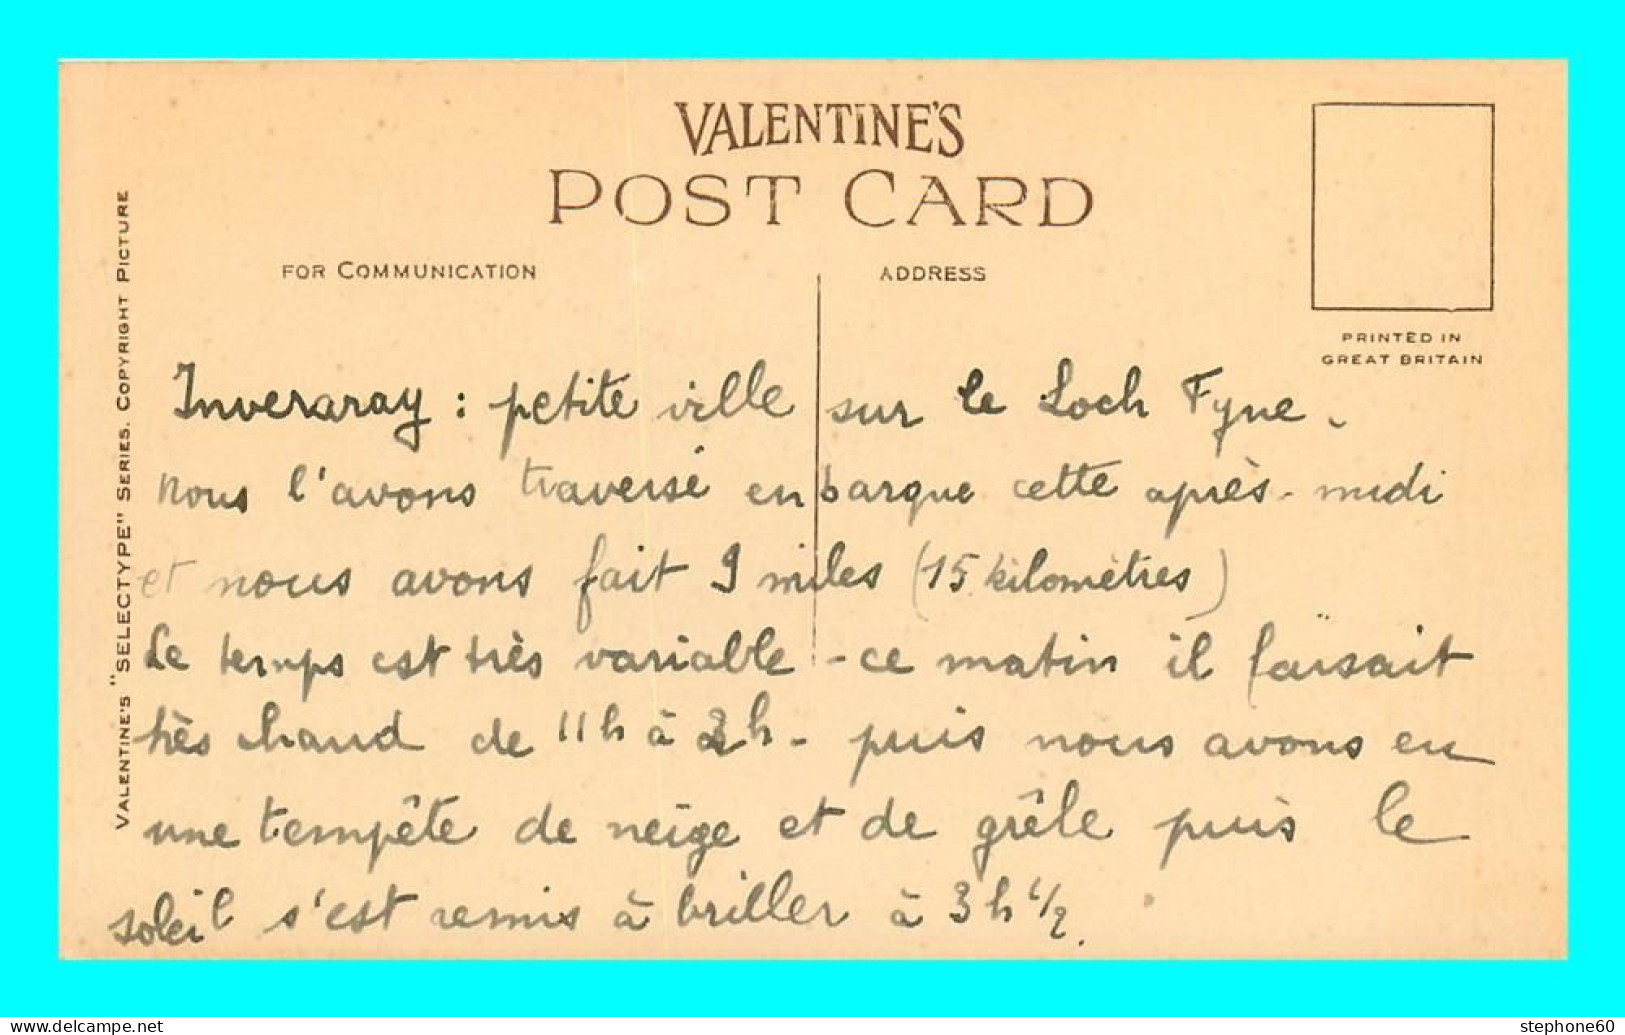 VALENTINE'S
POST CARD
FOR COMMUNICATION
ADDRESS
PRINTED IN
GREAT BRITAIN
VALENTINE'S "SELECTYPE" SERIES. COPYRIGHT PICTURE
Inveraray : petite ville sur le Loch Fyne.
Nous l'avons traversé en barque cette après-midi
et nous avons fait 9 miles (15 kilomètres)
Le temps est très variable - ce matin il faisait
très chaud de 11h à 2h - puis nous avons eu
une tempête de neige et de grêle puis le
soleil s'est remis à briller à 3h 1/2.
Delcampe.net
stephone60